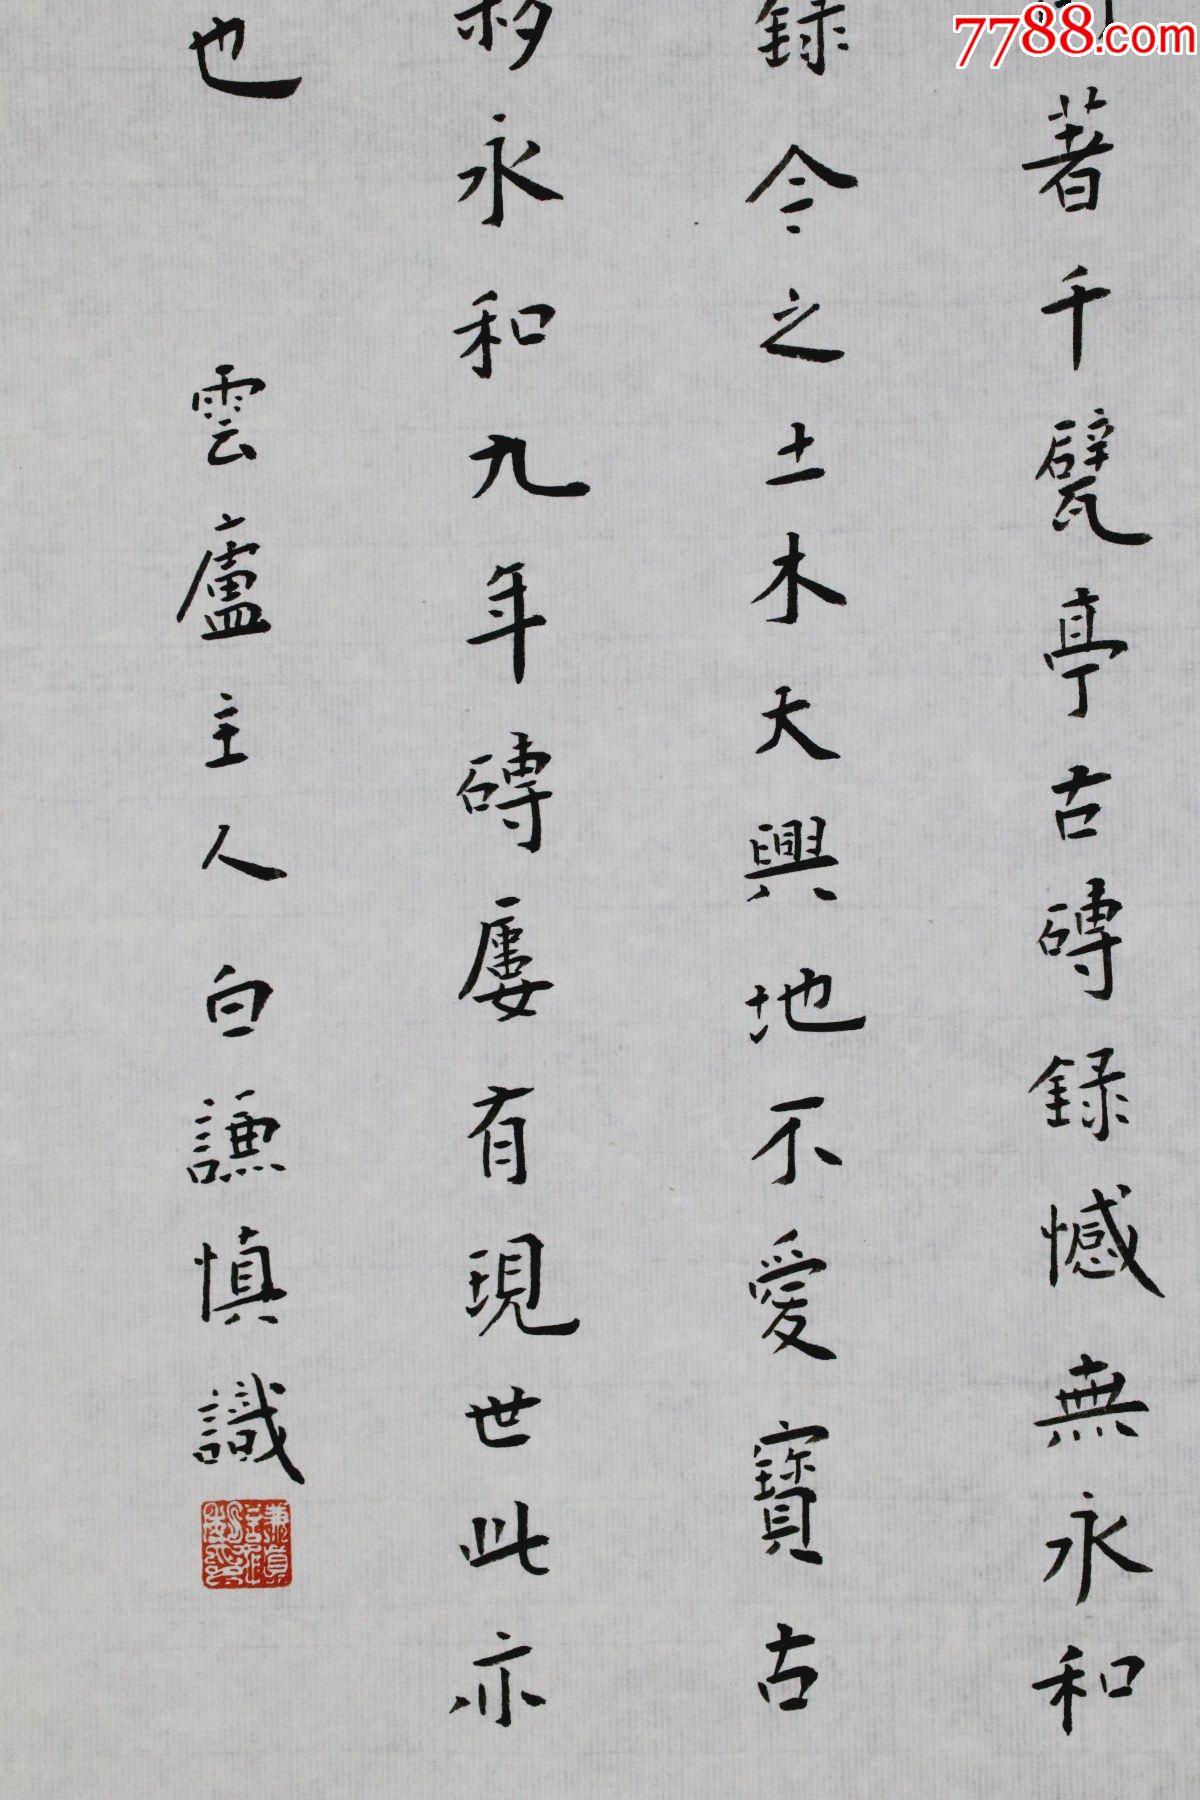 7788.com
著千甓亭古磚錄憾無永和
錄今之土木大興地不愛寶古
夥永和九年磚屢有現世此亦
也
雲廬主人白謙慎識